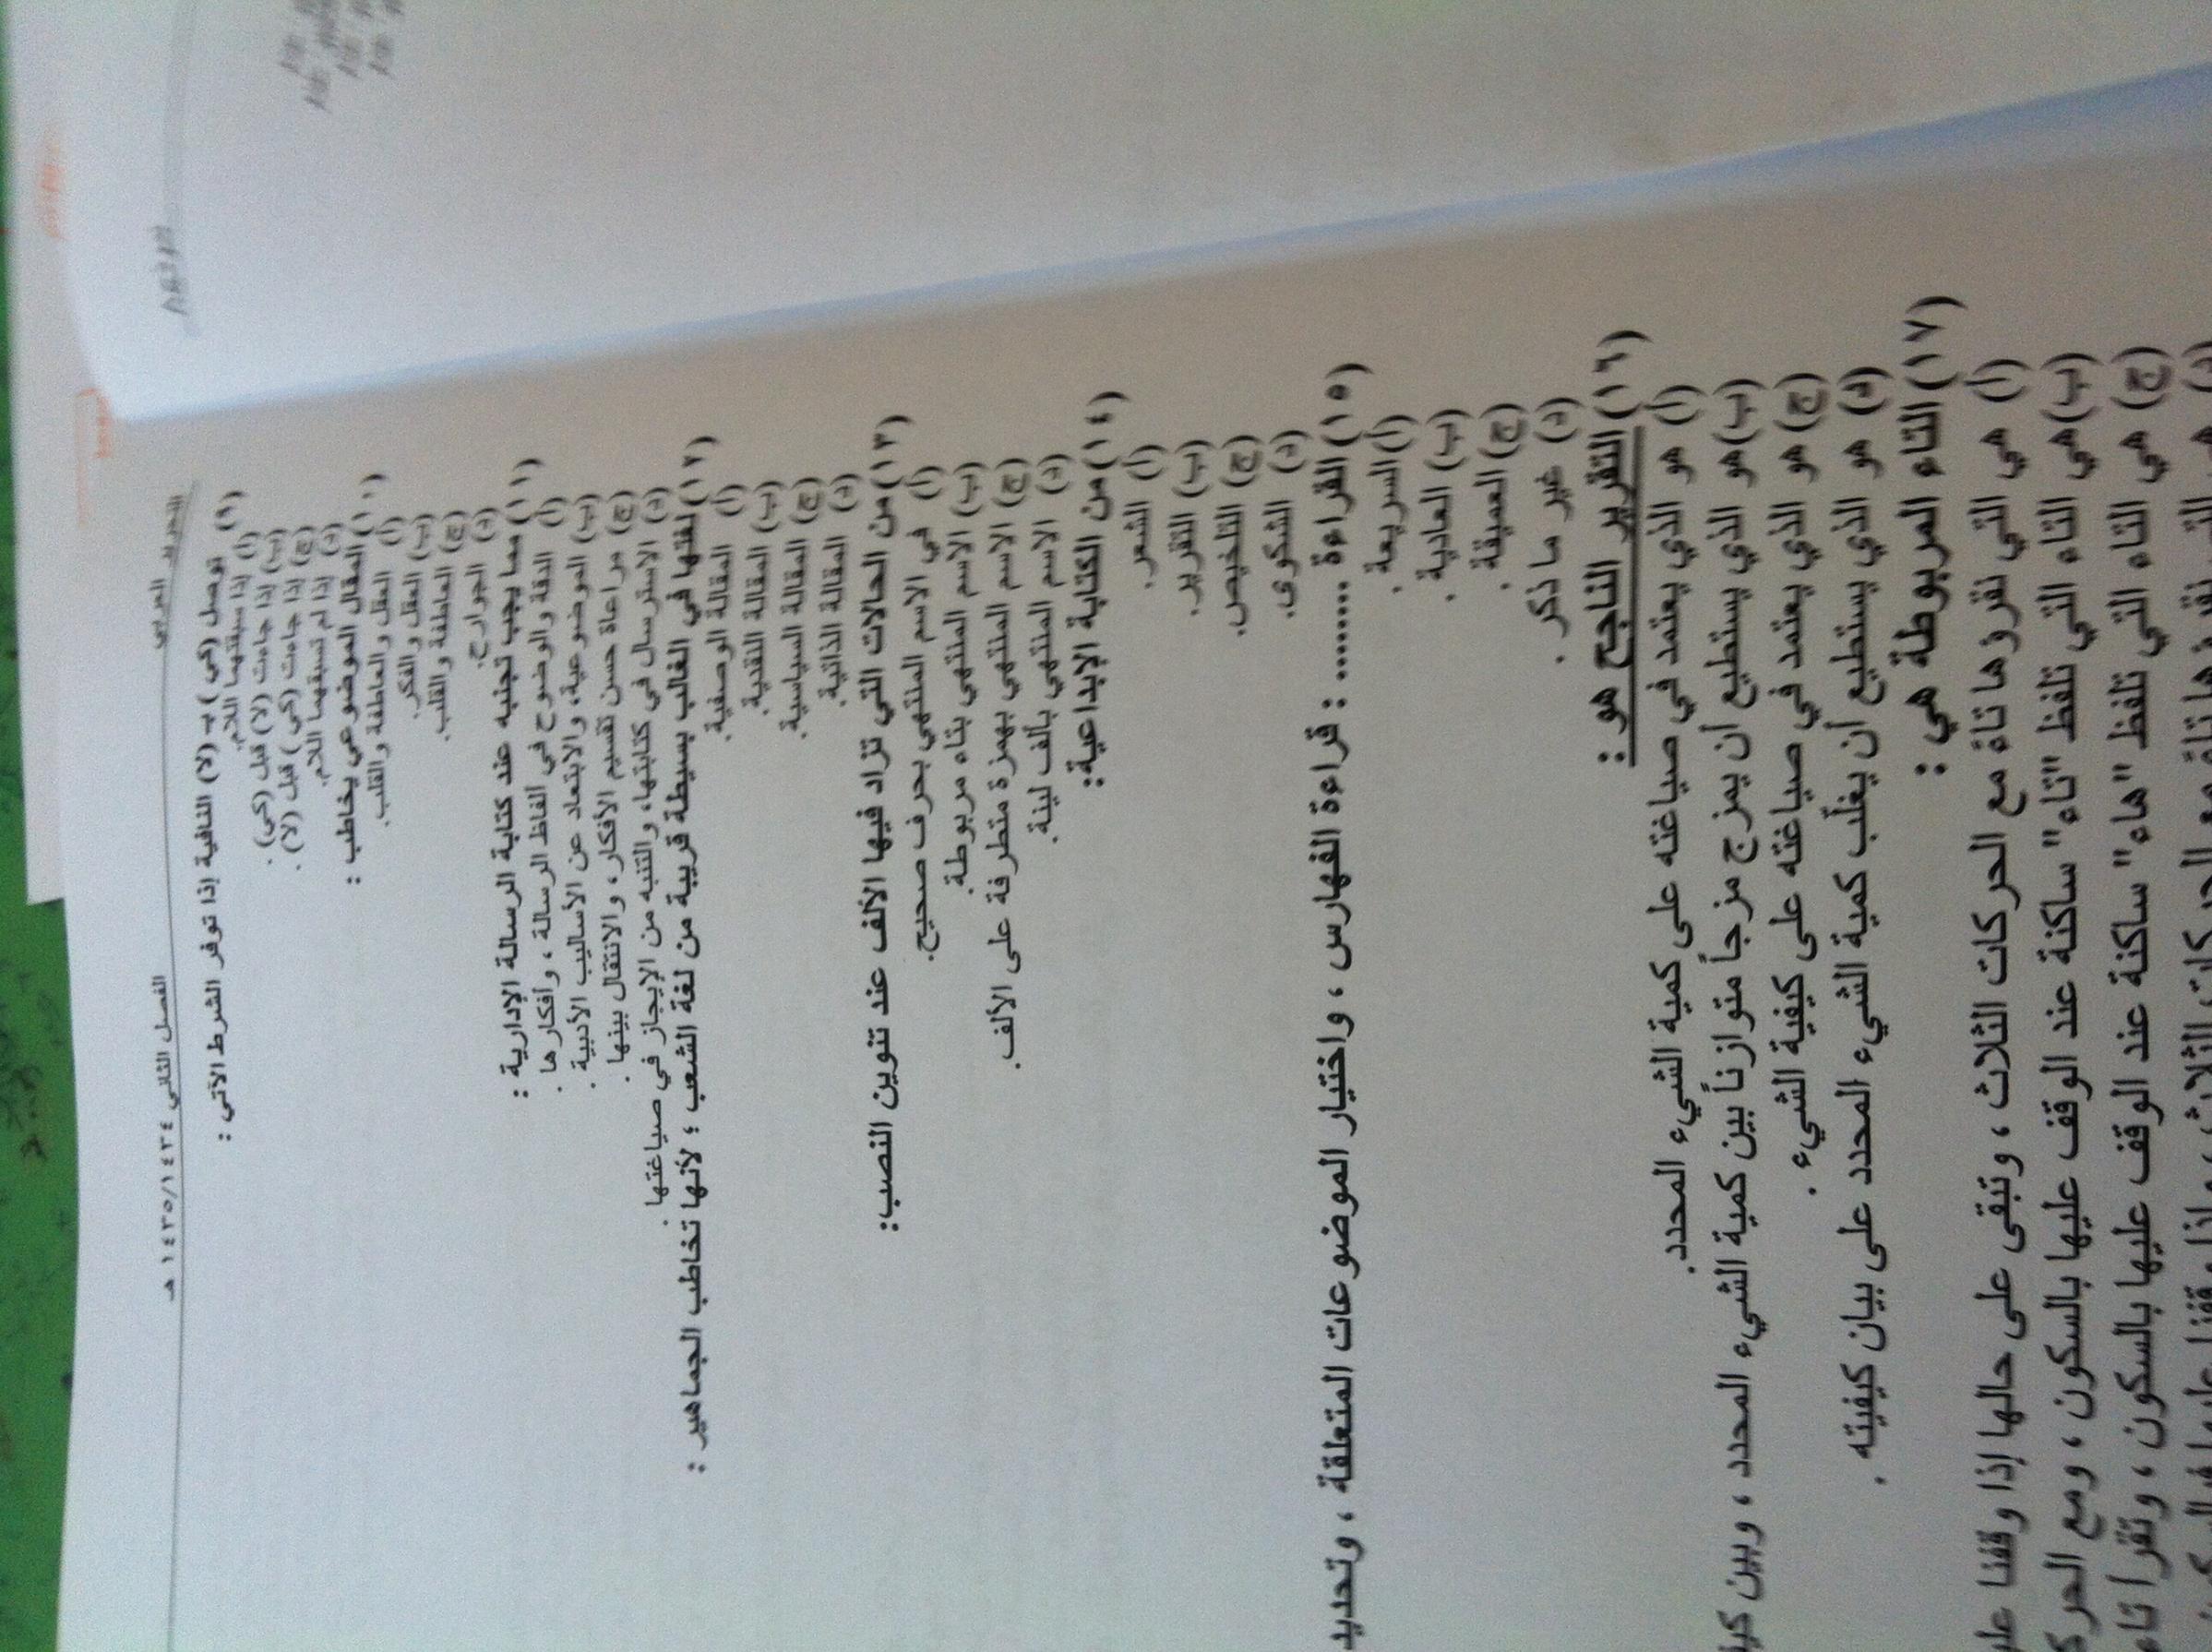 التحرير العربي
الفصل الثاني ١٤٣٥/١٤٣٤ هـ
(٩) توصل (كي) بـ (لا) النافية إذا توفر الشرط الآتي :
(أ) إذا سبقتهما اللام.
(ب) إذا جاءت (لا) قبل (كي) .
(ج) إذا جاءت (كي) قبل (لا) .
(د) إذا لم تسبقهما اللام.
(١٠) المقال الموضوعي يخاطب :
(أ) العقل والعاطفة والقلب.
(ب) العقل والفكر.
(ج) العاطفة والقلب.
(د) الجوارح.
(١١) مما يجب تجنبه عند كتابة الرسالة الإدارية :
(أ) الدقة والوضوح في ألفاظ الرسالة ، وأفكارها .
(ب) الموضوعية، والابتعاد عن الأساليب الأدبية .
(ج) مراعاة حسن تقسيم الأفكار، والانتقال بينها .
(د) الاسترسال في كتابتها، والتنبه من الإيجاز في صياغتها .
(١٢) لغتها في الغالب بسيطة قريبة من لغة الشعب ؛ لأنها تخاطب الجماهير :
(أ) المقالة الوصفية .
(ب) المقالة النقدية .
(ج) المقالة السياسية .
(د) المقالة الذاتية .
(١٣) من الحالات التي تزاد فيها الألف عند تنوين النصب:
(أ) في الاسم المنتهي بحرف صحيح.
(ب) الاسم المنتهي بتاء مربوطة.
(ج) الاسم المنتهي بهمزة متطرفة على الألف.
(د) الاسم المنتهي بألف لينة.
(١٤) من الكتابة الإبداعية:
(أ) الشعر .
(ب) التقرير.
(ج) التلخيص.
(د) الشكوى.
(١٥) القراءة ......... : قراءة الفهارس ، واختيار الموضوعات المتعلقة ، وتحديد
(أ) السريعة .
(ب) العادية .
(ج) العميقة .
(د) غير ما ذكر .
(١٦) التقرير الناجح هو :
(أ) هو الذي يعتمد في صياغته على كمية الشيء المحدد.
(ب) هو الذي يستطيع أن يمزج مزجاً متوازناً بين كمية الشيء المحدد ، وبين
(ج) هو الذي يعتمد في صياغته على كيفية الشيء .
(د) هو الذي يستطيع أن يغلّب كمية الشيء المحدد على بيان كيفيته .
(١٧) التاء المربوطة هي :
(أ) هي التي نقرؤها تاءً مع الحركات الثلاث ، وتبقى على حالها إذا وقفنا
(ب) هي التاء التي تلفظ "تاء" ساكنة عند الوقف عليها بالسكون ، ومع
(ج) هي التاء التي تلفظ "هاء" ساكنة عند الوقف عليها بالسكون ، وتقرأ